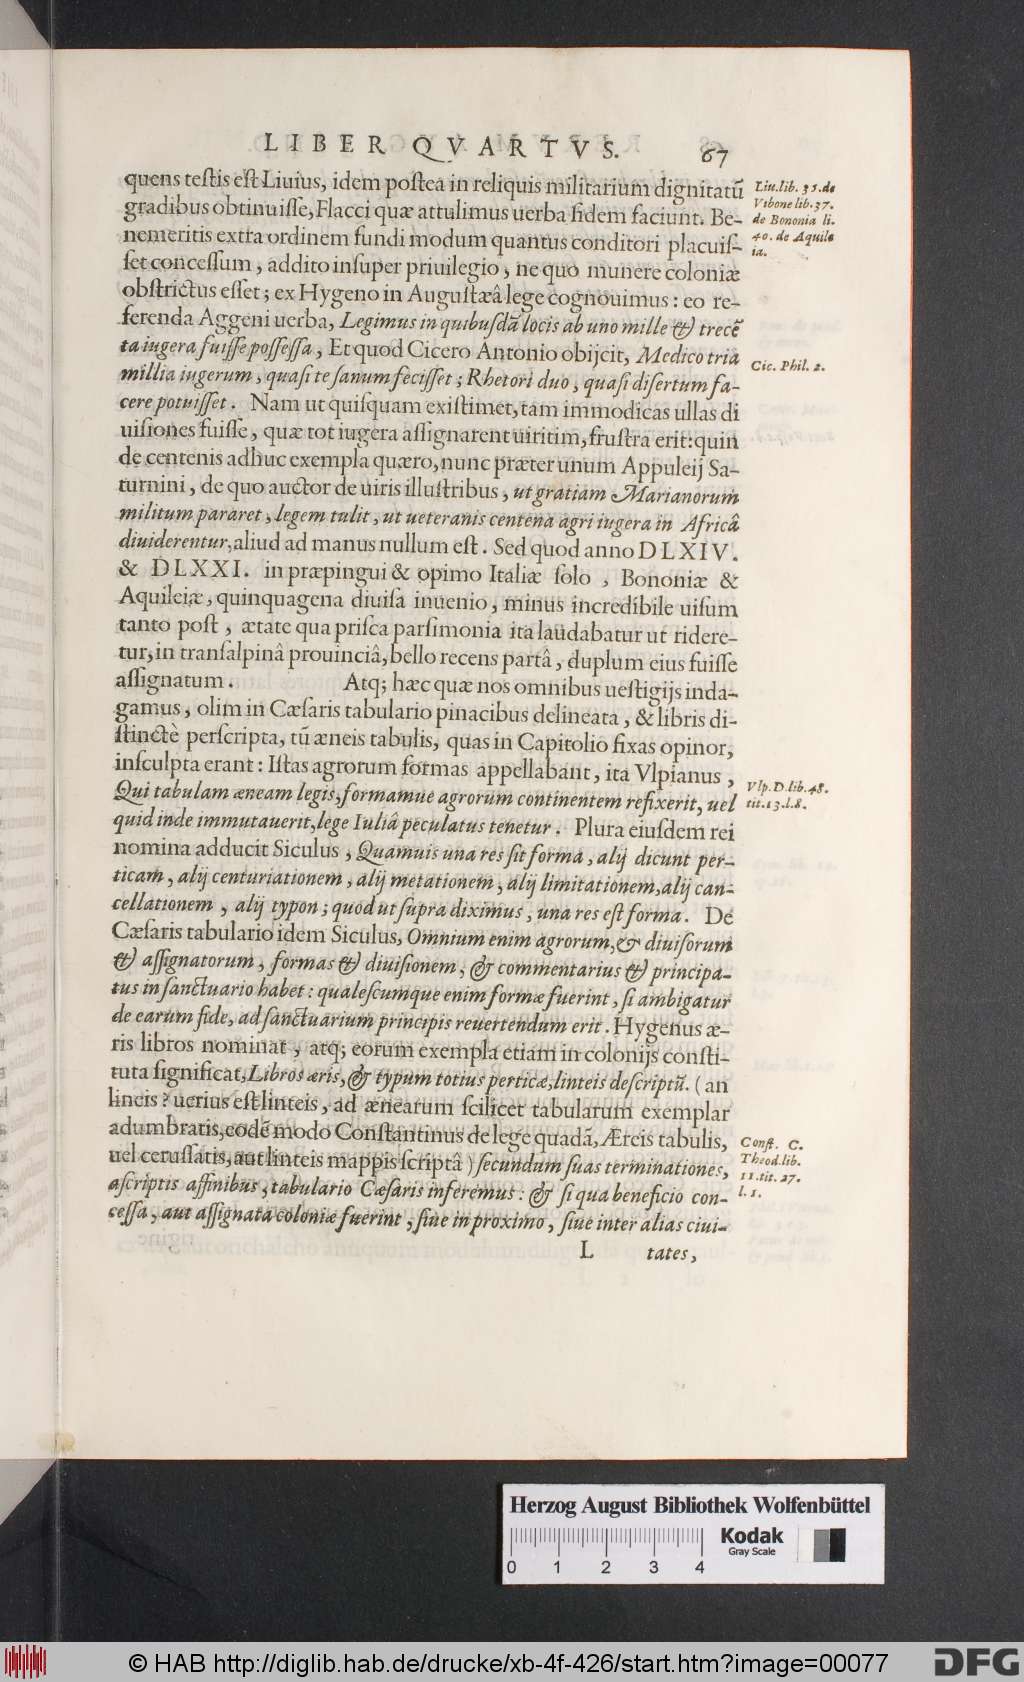 LIBER QVARTVS. 67
quens testis est Liuius, idem postea in reliquis militarium dignitatū
gradibus obtinuisse, Flacci quæ attulimus uerba fidem faciunt. Be-
nemeritis extra ordinem fundi modum quantus conditori placuis-
set concessum, addito insuper priuilegio, ne quo munere coloniæ
obstrictus esset; ex Hygeno in Augustæâ lege cognouimus: eo re-
ferenda Aggeni uerba, Legimus in quibusdā locis ab uno mille & trecē
ta iugera fuisse possessa, Et quod Cicero Antonio obijcit, Medico tria
millia iugerum, quasi te sanum fecisset; Rhetori duo, quasi disertum fa-
cere potuisset. Nam ut quisquam existimet, tam immodicas ullas di
uisiones fuisse, quæ tot iugera assignarent uiritim, frustra erit: quin
de centenis adhuc exempla quæro, nunc præter unum Appuleij Sa-
turnini, de quo auctor de uiris illustribus, ut gratiam Marianorum
militum pararet, legem tulit, ut ueteranis centena agri iugera in Africâ
diuiderentur, aliud ad manus nullum est. Sed quod anno DLXIV.
& DLXXI. in præpingui & opimo Italiæ solo, Bononiæ &
Aquileiæ, quinquagena diuisa inuenio, minus incredibile uisum
tanto post, ætate qua prisca parsimonia ita laudabatur ut ridere-
tur, in transalpinâ prouinciâ, bello recens partâ, duplum eius fuisse
assignatum. Atq; hæc quæ nos omnibus uestigijs inda-
gamus, olim in Cæsaris tabulario pinacibus delineata, & libris di-
stinctè perscripta, tū æneis tabulis, quas in Capitolio fixas opinor,
insculpta erant: Istas agrorum formas appellabant, ita Vlpianus,
Qui tabulam æneam legis, formamue agrorum continentem refixerit, uel
quid inde immutauerit, lege Iuliâ peculatus tenetur. Plura eiusdem rei
nomina adducit Siculus, Quamuis una res sit forma, alij dicunt per-
ticam, alij centuriationem, alij metationem, alij limitationem, alij can-
cellationem, alij typon; quod ut supra diximus, una res est forma. De
Cæsaris tabulario idem Siculus, Omnium enim agrorum, & diuisorum
& assignatorum, formas & diuisionem, & commentarius & principa-
tus in sanctuario habet: qualescumque enim formæ fuerint, si ambigatur
de earum fide, ad sanctuarium principis reuertendum erit. Hygenus æ-
ris libros nominat, atq; eorum exempla etiam in colonijs consti-
tuta significat, Libros æris, & typum totius perticæ, linteis descriptū. (an
lineis? uerius est linteis, ad ænearum scilicet tabularum exemplar
adumbratis, eodē modo Constantinus de lege quadā, Æreis tabulis,
uel cerussatis, aut linteis mappis scriptâ) secundum suas terminationes,
ascriptis affinibus, tabulario Cæsaris inferemus: & si qua beneficio con-
cessa, aut assignata coloniæ fuerint, siue in proximo, siue inter alias ciui-
L tates,
Liu. lib. 35. de
Vibone lib. 37.
de Bononia li.
40. de Aquile
ia.
Cic. Phil. 2.
Vlp. D. lib. 48.
tit. 13. l. 8.
Const. C.
Theod. lib.
11. tit. 27.
l. 1.
Herzog August Bibliothek Wolfenbüttel
0 1 2 3 4
Kodak
Gray Scale
© HAB http://diglib.hab.de/drucke/xb-4f-426/start.htm?image=00077
DFG